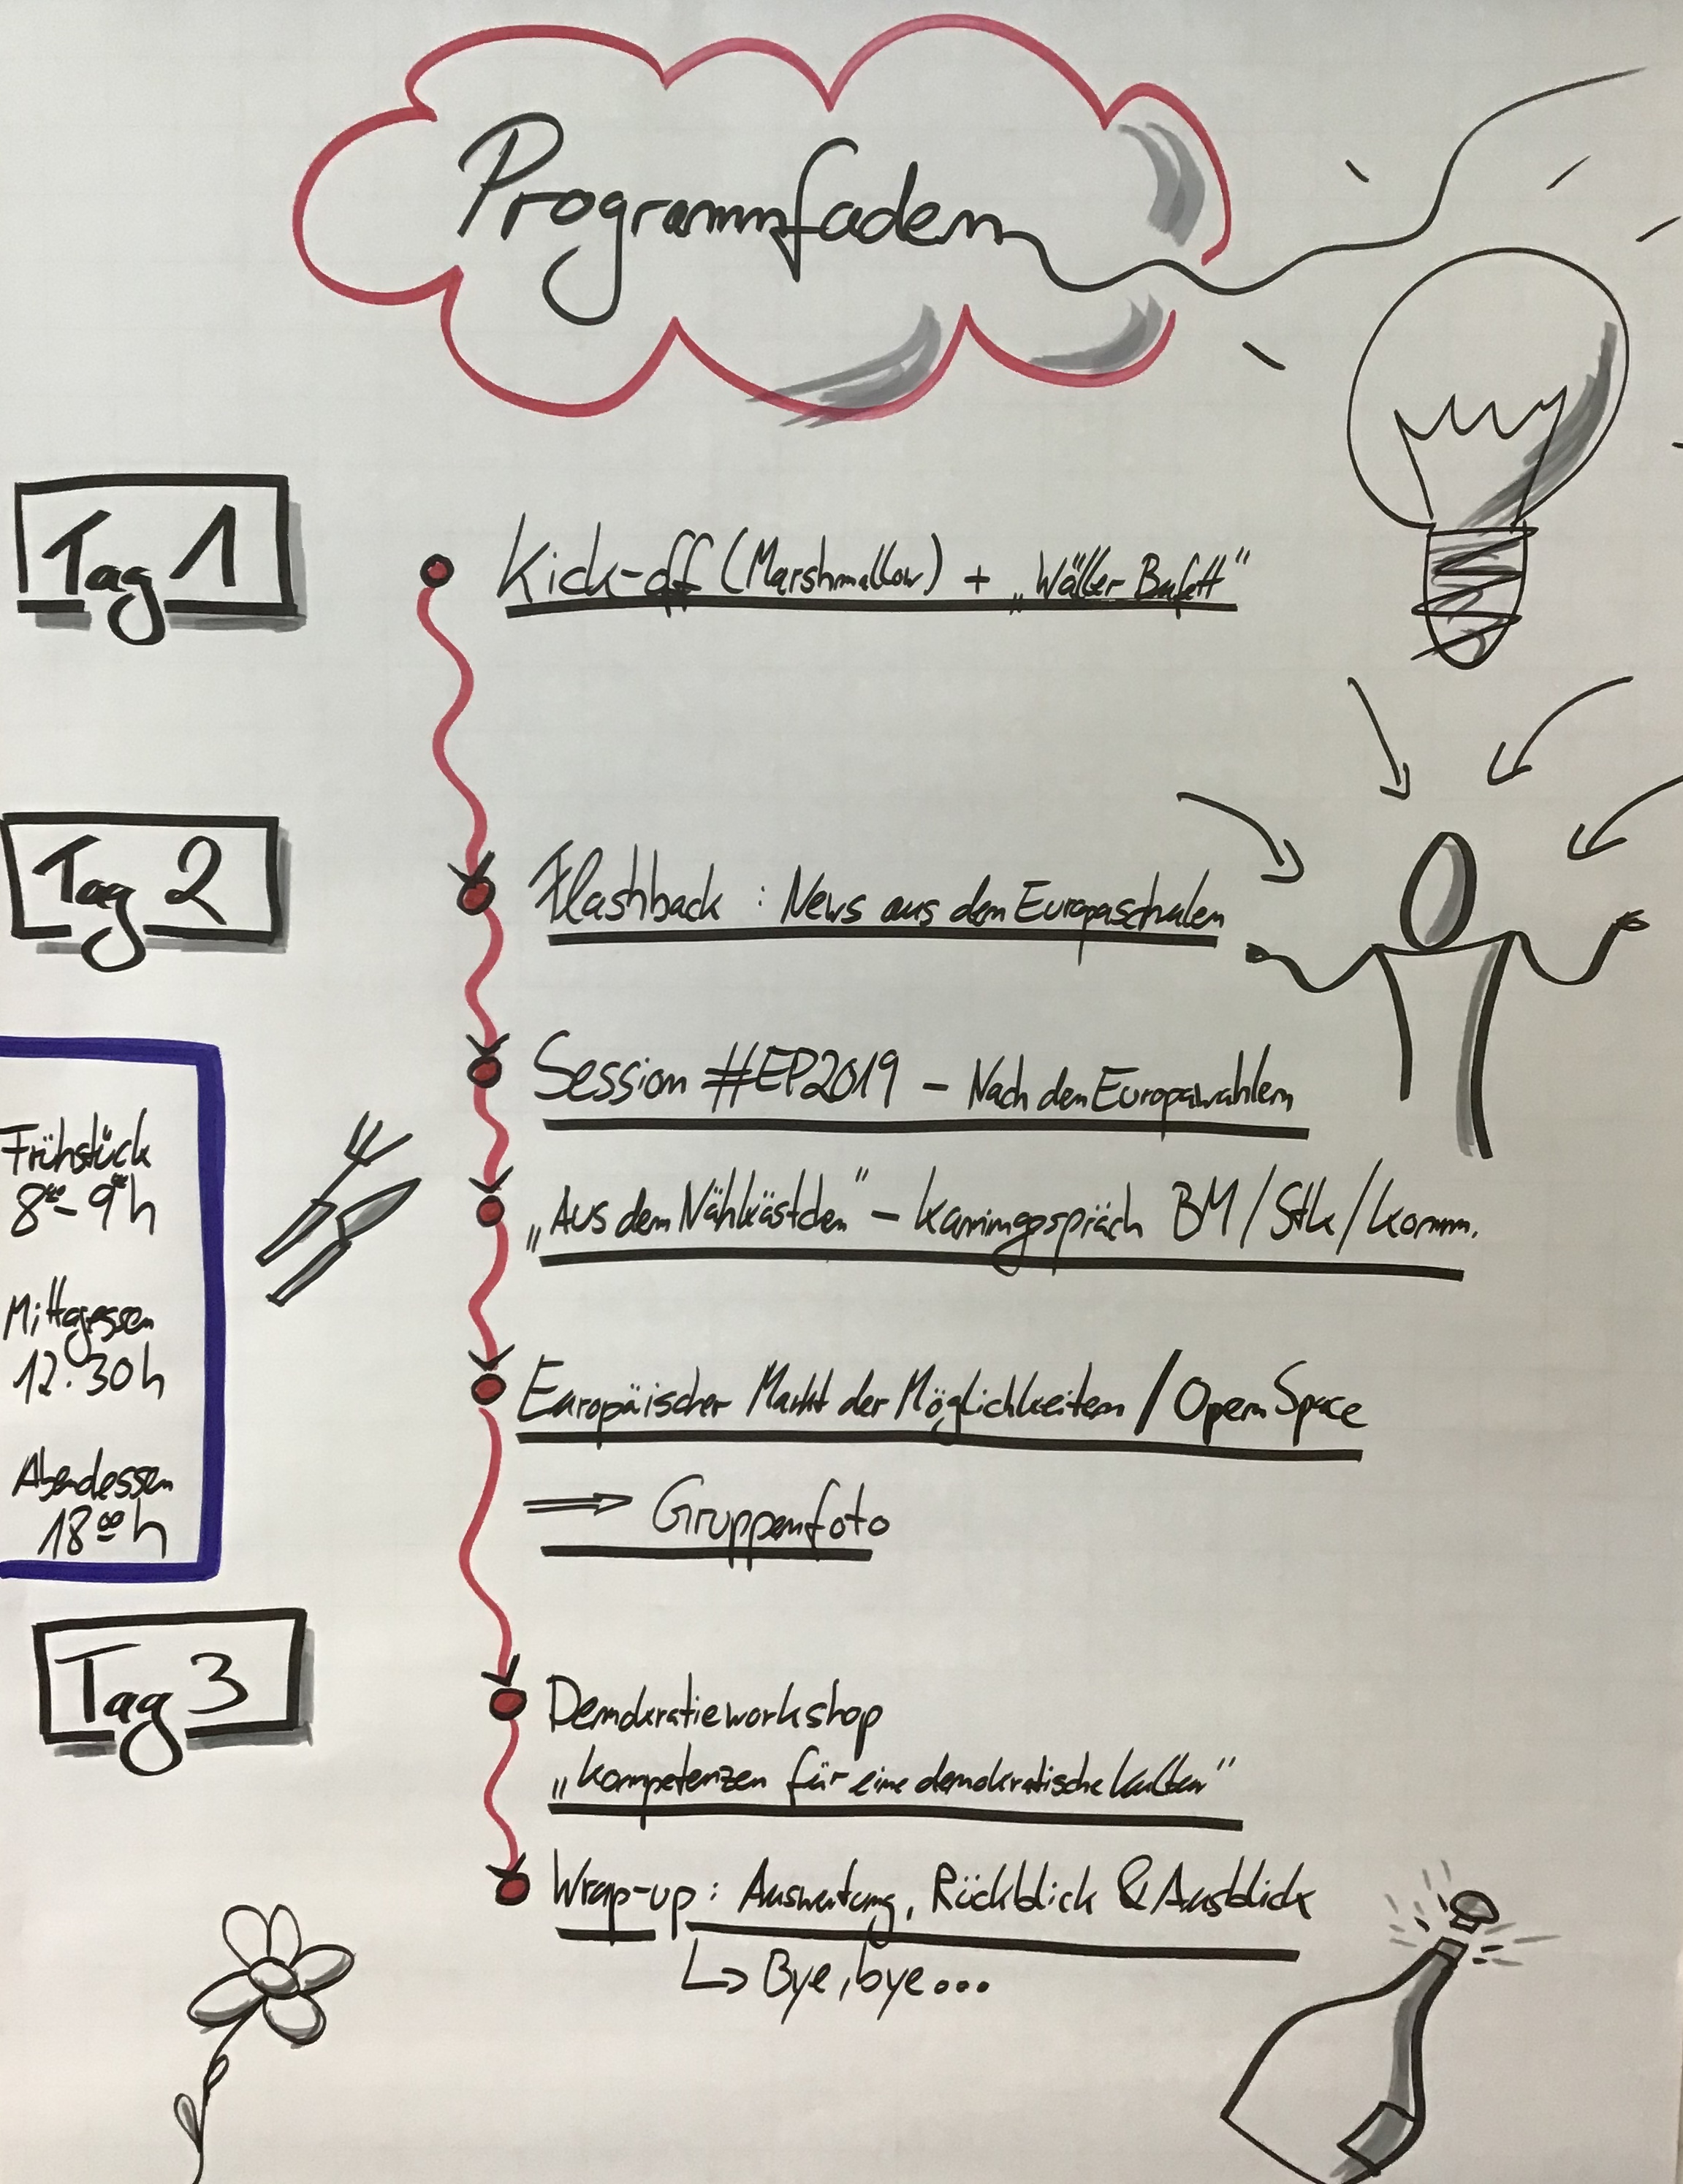 Programmfaden
Tag 1
Kick-off (Marshmallow) + „Wäller Bufett"
Tag 2
Flashback : News aus den Europaschulen
Session #EP2019 – Nach den Europawahlen
„Aus dem Nähkästchen" – Kamingespräch BM/Stk/Komm.
Europäischer Markt der Möglichkeiten / Open Space
⇒ Gruppenfoto
Frühstück
8⁰⁰ - 9⁰⁰h
Mittagessen
12.30h
Abendessen
18⁰⁰h
Tag 3
Demokratieworkshop
„Kompetenzen für eine demokratische Kultur"
Wrap-up: Auswertung, Rückblick & Ausblick
↳ Bye, bye...